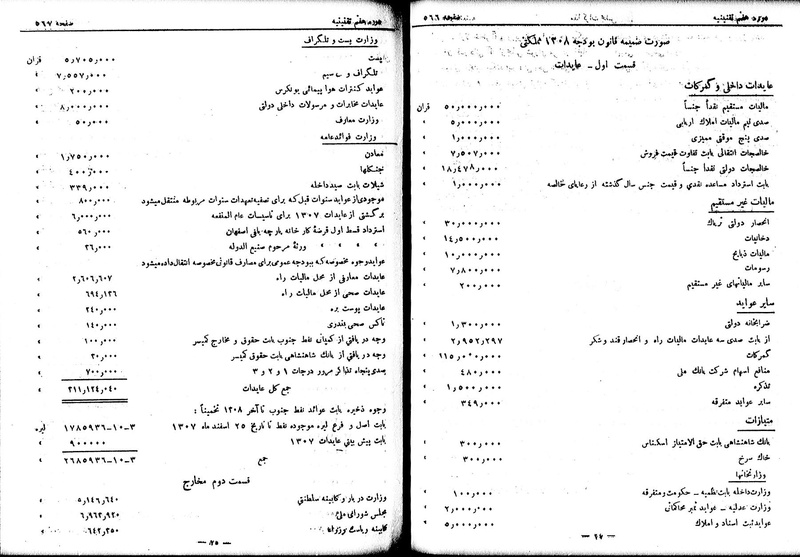 دوره هفتم تقنینیه
صفحه ۵۶۶
صورت ضمیمه قانون بودجه ۱۳۰۸ مملکتی
قسمت اول – عایدات
عایدات داخلی و گمرکات
مالیات مستقیم نقداً جنساً ۵۰٫۰۰۰٫۰۰۰ قران
صدی نیم مالیات املاک اربابی ۵٫۰۰۰٫۰۰۰ »
صدی پنج موقتی ممیزی ۱٫۰۰۰٫۰۰۰ »
خالصجات انتقالی بابت تفاوت قیمت فروش ۷٫۵۰۷٫۰۰۰ »
خالصجات دولتی نقداً جنساً ۱۸٫۴۷۸٫۰۰۰ »
بابت استرداد مساعده نقدی و قیمت جنس سال گذشته از رعایای خالصه ۱٫۰۰۰٫۰۰۰ »
مالیات غیر مستقیم
انحصار دولتی تریاک ۳۰٫۰۰۰٫۰۰۰ »
دخانیات ۱۴٫۵۰۰٫۰۰۰ »
مالیات ذبایح ۱۰٫۰۰۰٫۰۰۰ »
رسومات ۷٫۸۰۰٫۰۰۰ »
سایر مالیاتهای غیر مستقیم ۲۰۰٫۰۰۰ »
سایر عواید
ضرابخانه دولتی ۱٫۳۰۰٫۰۰۰ »
از بابت صدی سه عایدات مالیات راه و انحصار قند و شکر ۲٫۹۵۲٫۲۹۷ »
گمرکات ۱۱۵٫۰۰۰٫۰۰۰ »
منافع اسهام شرکت بانک ملی ۴۸۰٫۰۰۰ »
تذکره ۱٫۵۰۰٫۰۰۰ »
سایر عواید متفرقه ۳۴۹٫۰۰۰ »
امتیازات
بانک شاهنشاهی بابت حق الامتیاز اسکناس ۳۰۰٫۰۰۰ »
خاک سرخ ۳۰۰٫۰۰۰ »
وزارتخانها
وزارت داخله بابت نظمیه – حکومت و متفرقه ۱۰۰٫۰۰۰ »
وزارت عدلیه – عواید تمبر محاکماتی ۲٫۰۰۰٫۰۰۰ »
عواید ثبت اسناد و املاک ۵٫۰۰۰٫۰۰۰ »
دوره هفتم تقنینیه
صفحه ۵۶۷
وزارت پست و تلگراف
پست ۵٫۷۰۵٫۰۰۰ قران
تلگراف و بی سیم ۷٫۵۵۷٫۰۰۰ »
عواید کنترات هوا پیمائی یونکرس ۲۰۰٫۰۰۰ »
عایدات مخابرات و مرسولات داخلی دولتی ۸٫۰۰۰٫۰۰۰ »
وزارت معارف ۵۰٫۰۰۰ »
وزارت فوائد عامه
معادن ۱٫۷۵۰٫۰۰۰ »
جنگلها ۴۰۰٫۰۰۰ »
شیلات بابت صید داخله ۳۳۹٫۰۰۰ »
موجودی از عواید سنوات قبل که برای تصفیه تعهدات سنوات مربوطه منتقل میشود ۸۰۰٫۰۰۰ »
برگشتی از عایدات ۱۳۰۷ برای تاسیسات عام المنفعه ۶٫۰۰۰٫۰۰۰ »
استرداد قسط اول قرضه کارخانه پارچه بافی اصفهان ۵۶۰٫۰۰۰ »
» » » » ورثهٔ مرحوم صنیع الدوله ۳۶٫۰۰۰ »
عواید وجوه مخصوصه که ببودجه عمومی برای مصارف قانونی مخصوصه انتقال داده میشود
عایدات معارفی از محل مالیات راه ۲٫۶۰۶٫۶۰۷ »
عایدات صحی از محل مالیات راه ۶۹۴٫۱۳۶ »
عایدات پوست بره ۲۴۰٫۰۰۰ »
تاکس صحی بندری ۱۴۰٫۰۰۰ »
وجه دریافتی از کمپانی نفط جنوب بابت حقوق و مخارج کمیسر ۱۰۰٫۰۰۰ »
وجه دریافتی از بانک شاهنشاهی بابت حقوق کمیسر ۲۰٫۰۰۰ »
صدی پنجاه تذاکر مرور درجات ۱ و ۲ و ۳ ۷۰۰٫۰۰۰ »
جمع کل عایدات ۳۱۱٫۱۲۴٫۰۴۰ »
وجوه ذخیره بابت عوائد نفط جنوب تا آخر ۱۳۰۸ تخمیناً :
بابت اصل و فرع لیره موجوده نقط تا تاریخ ۲۵ اسفند ماه ۱۳۰۷ ۱۷۸۵۹۳۶-۱۰-۳ لیره
بابت پیش بینی عایدات ۱۳۰۷ ۹۰۰۰۰۰ »
جمع ۲۶۸۵۹۳۶-۱۰-۳ »
قسمت دوم مخارج
وزارت دربار و کابینه سلطنتی ۵٫۱۴۶٫۶۴۰ »
مجلس شورای ملی ۶٫۹۶۳٫۹۲۰ »
کابینه ریاست وزراء ۶۴۲٫۲۵۰ »